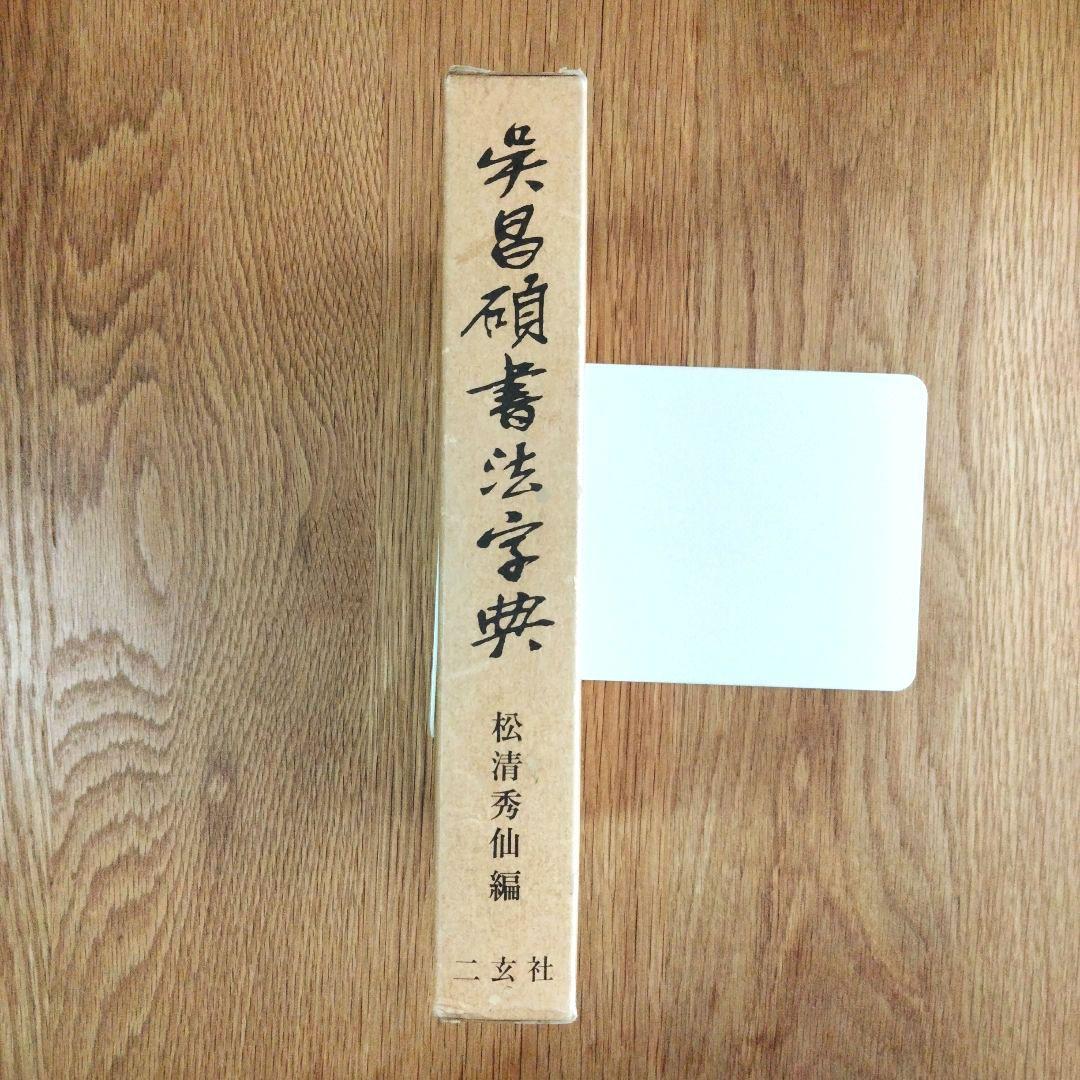 吳昌碩書法字典
松清秀仙編
二玄社